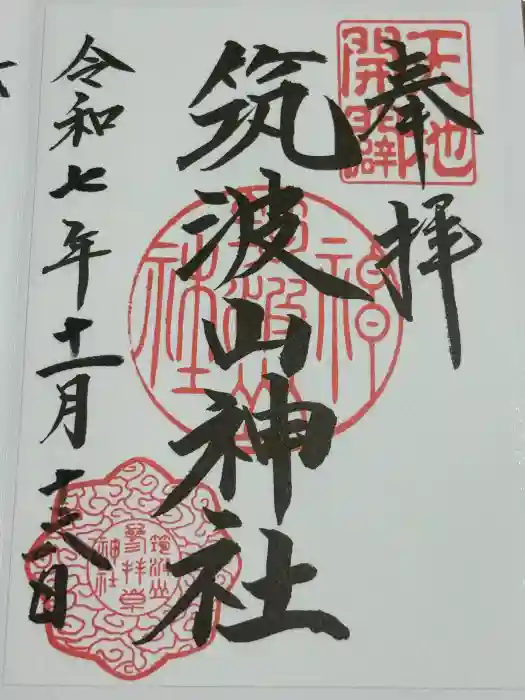 奉拝
天地
開闢
筑波山神社
神
筑波山
社
令和七年十一月十六日
筑波山
參拝章
神社